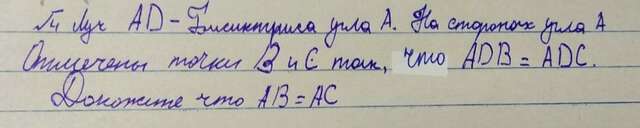 Луч AD - Биссектриса угла А. На сторонах угла А
Отмечены точки В и С так, что ADB = ADC.
Докажите что AB = AC